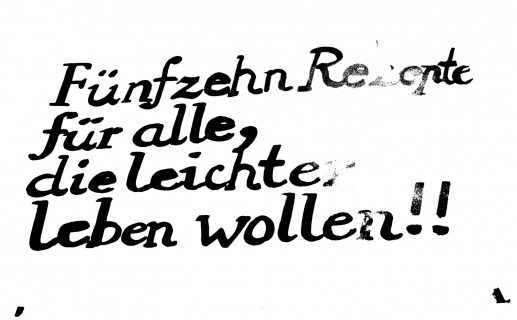 Fünfzehn Rezepte
für alle,
die leichter
leben wollen!!